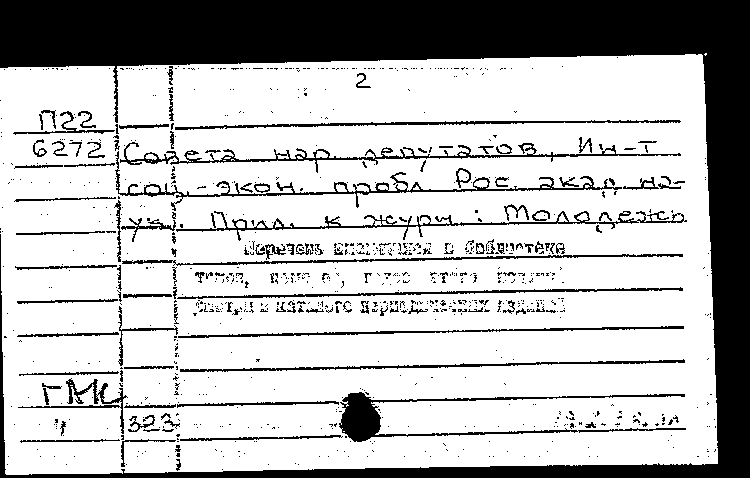 2
П22
6272 Совета нар. депутатов, Ин-т
соц.-экон. пробл. Рос. акад. на-
ук. Прил. к журн.: Молодежь
Перечень имеющихся в библиотеке
томов, номеров, годов этого издания
смотри в каталоге периодических изданий
ГМК
ч 323